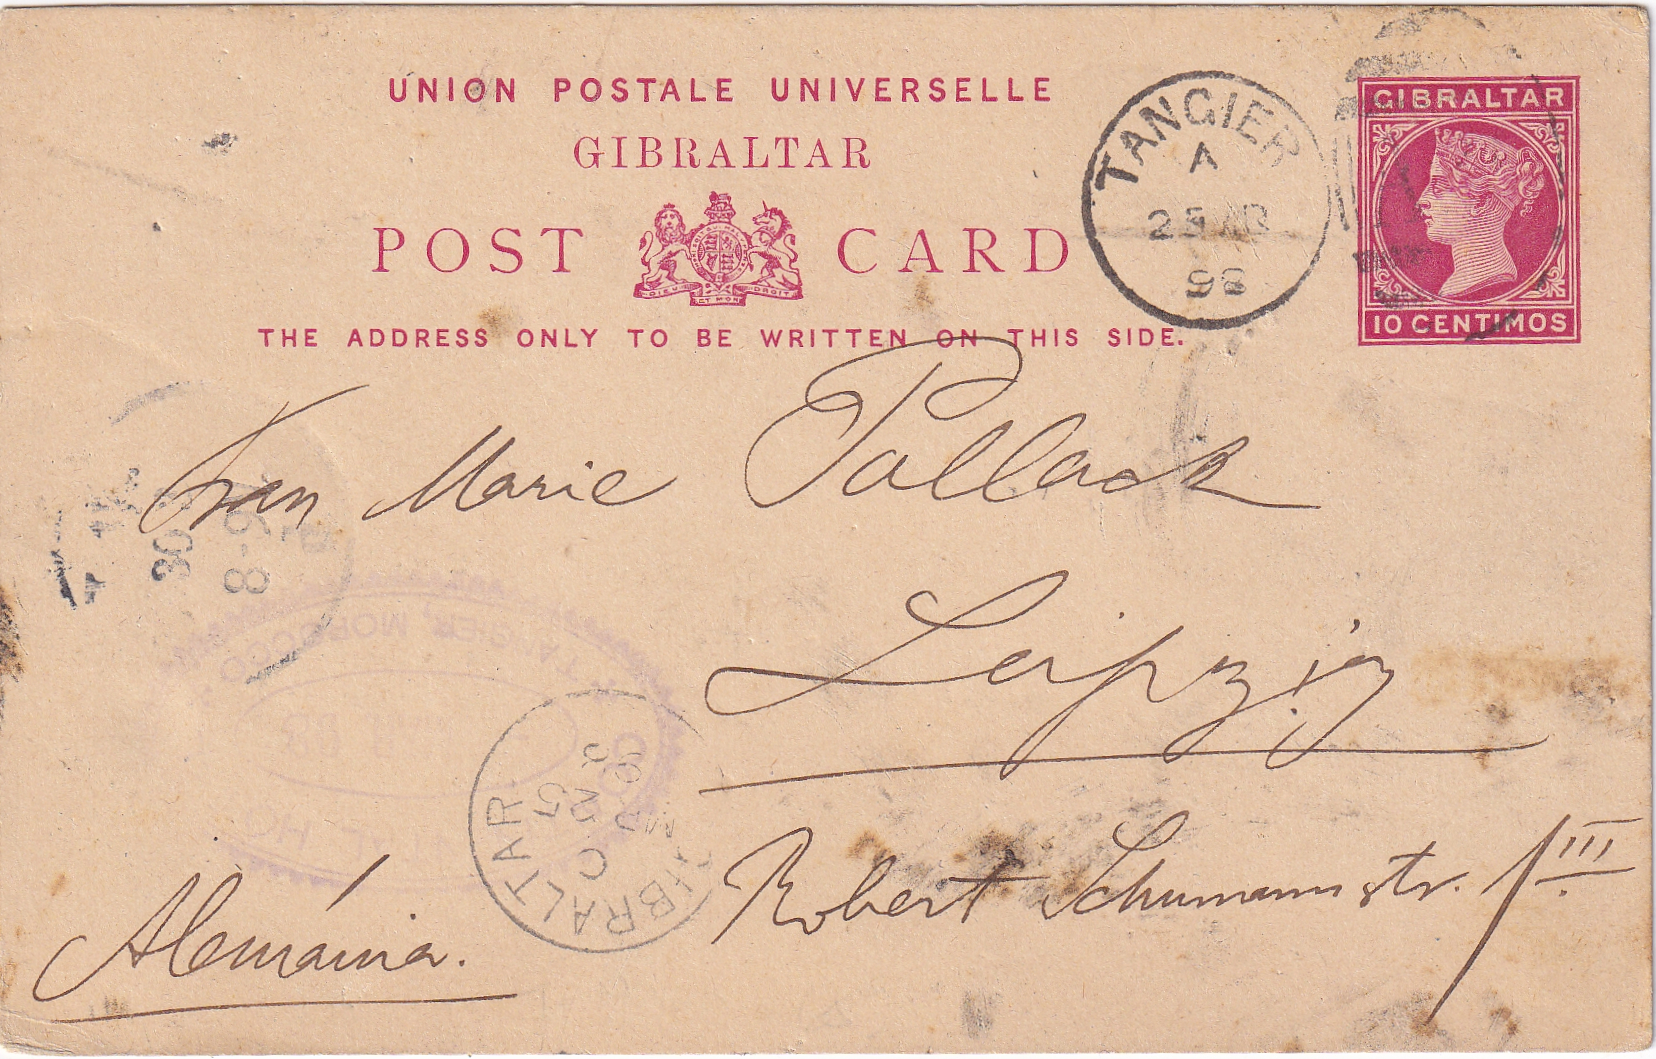 UNION POSTALE UNIVERSELLE
GIBRALTAR
POST CARD
DIEU ET MON DROIT
THE ADDRESS ONLY TO BE WRITTEN ON THIS SIDE.
GIBRALTAR
10 CENTIMOS
TANGIER
A
98
Frau Marie Pollack
Leipzig
Robert Schumannstr. 1 III
Alemánia.
GIBRALTAR
C
TANGIER, MOROCCO
8-9